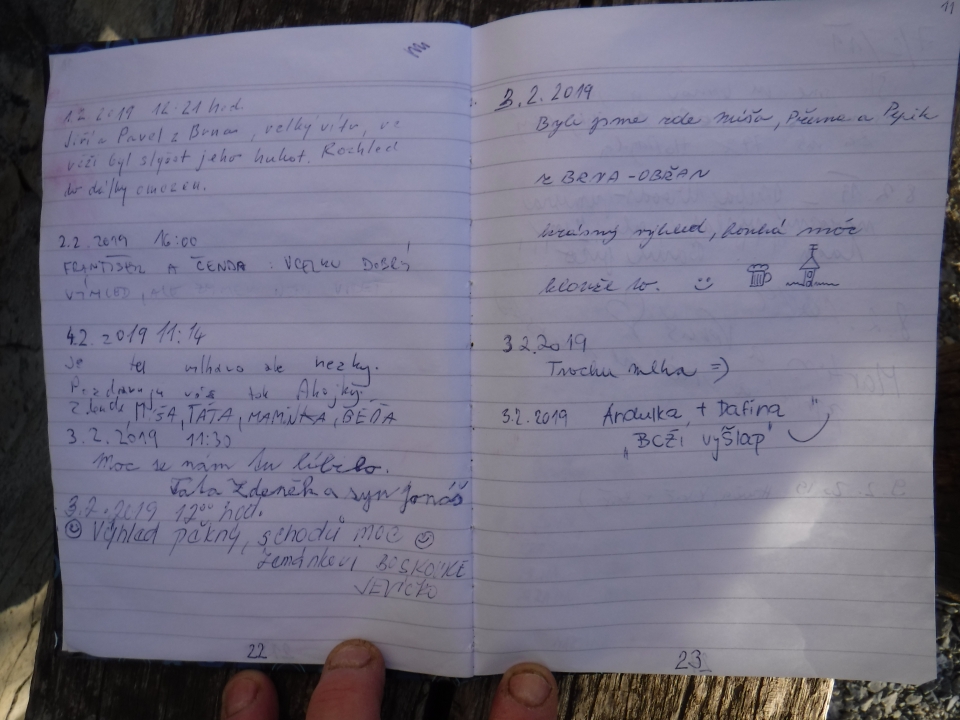 1.2. 2019 12:21 hod.
Jiří a Pavel z Brna, velký vítr, ve
věži byl slyšet jeho hukot. Rozhled
do dálky omezen.
2.2. 2019 16:00
FRANTIŠEK A ČENDA : VCELKU DOBRÝ
VÝHLED,
4.2. 2019 11:14
Je tu mlhavo ale hezky.
Pozdravuju vás tak Ahojky.
MÍŠA, TÁTA, MAMINKA, BÉĎA
3.2.2019 11:30
Moc se nám tu líbilo.
Táta Zdeněk a syn Jonáš
3.2.2019 12⁰⁰ hod.
Výhled pěkný, schodů moc
Zemánkovi BOSKOVICE
JEVÍČKO
22
11
3.2.2019
Byli jsme zde Míša, a Pepík
z BRNA-OBŘAN
krásný výhled, moc
to.
3.2.2019
Trochu mlha =)
3.2.2019 Andulka + Dafina
"BOŽÍ VÝŠLAP"
23